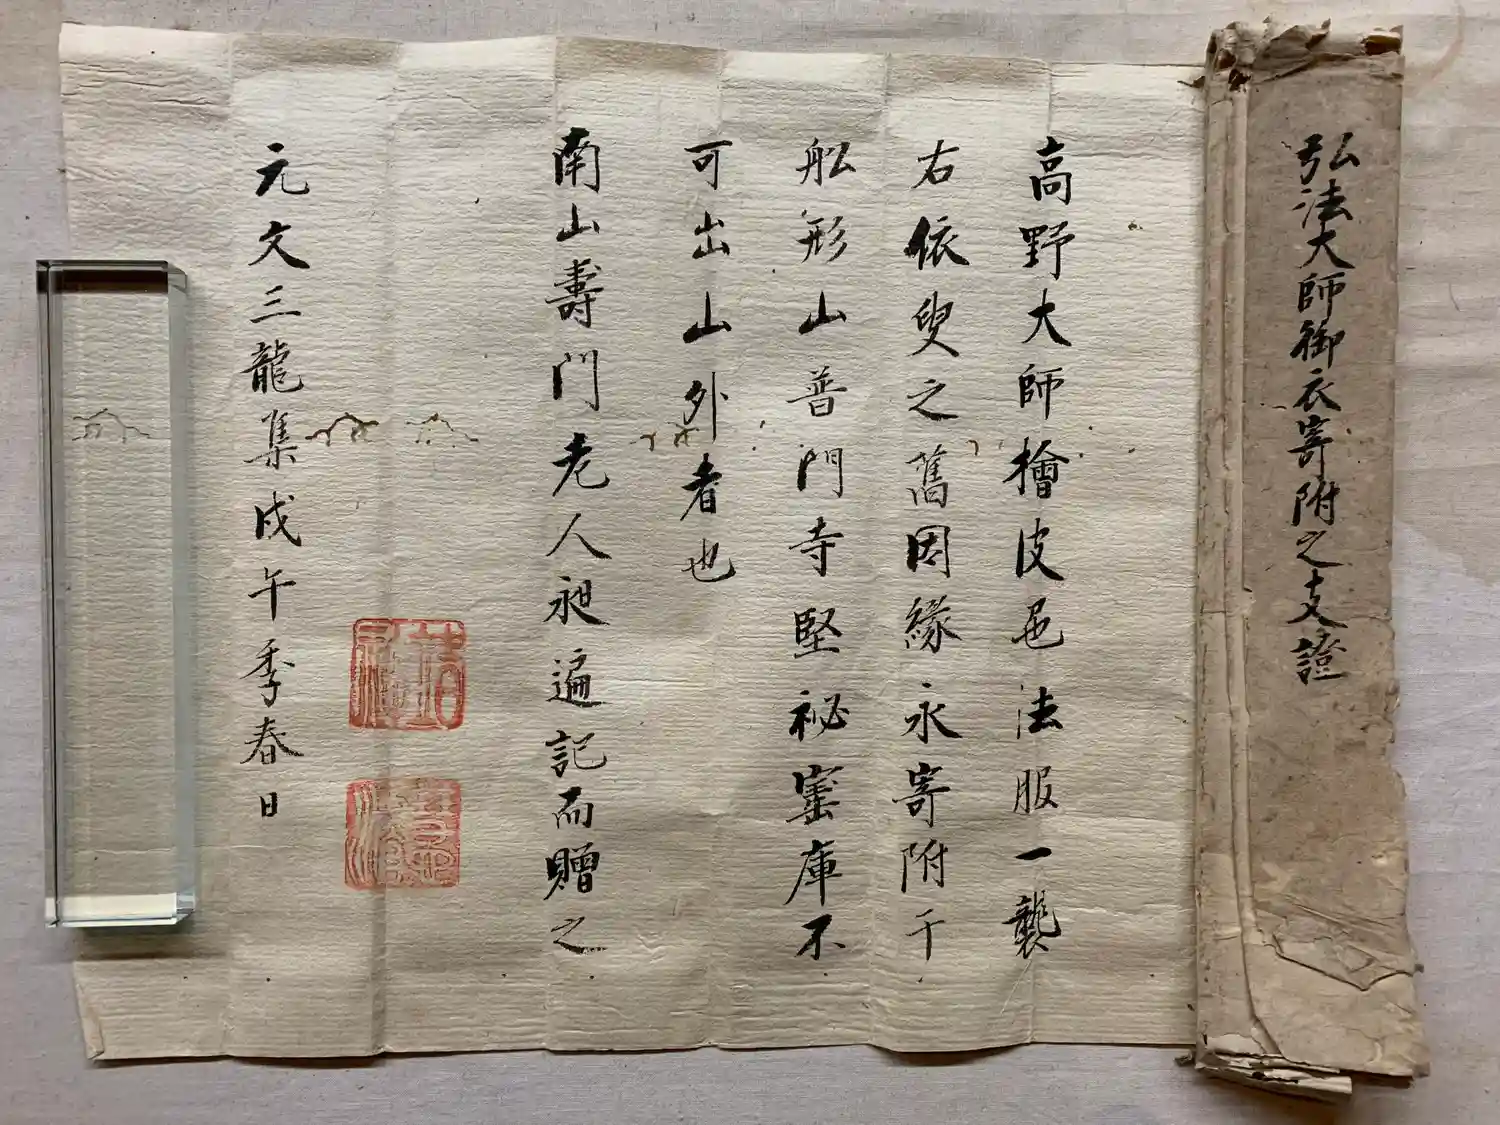 弘法大師御衣寄附之支證
高野大師檜皮色法服一襲
右依叟之舊因緣永寄附于
舩形山普門寺堅祕密庫不
可出山外者也
南山壽門老人昶遍記而贈之
元文三龍集戊午季春日